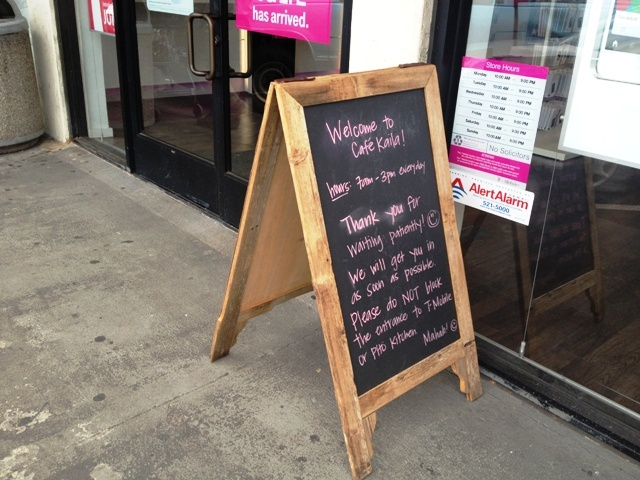 has arrived.
Welcome to
Café Kaila!
hours: 7am - 3pm everyday
Thank you for
waiting patiently!
We will get you in
as soon as possible.
Please do NOT block
the entrance to T-Mobile
or Pho Kitchen. Mahalo!
Store Hours
Monday: 10:00 AM 9:00 PM
Tuesday: 10:00 AM 9:00 PM
Wednesday: 10:00 AM 9:00 PM
Thursday: 10:00 AM 9:00 PM
Friday: 10:00 AM 9:00 PM
Saturday: 10:00 AM 9:00 PM
Sunday: 10:00 AM
No Solicitors
AlertAlarm
521-5000